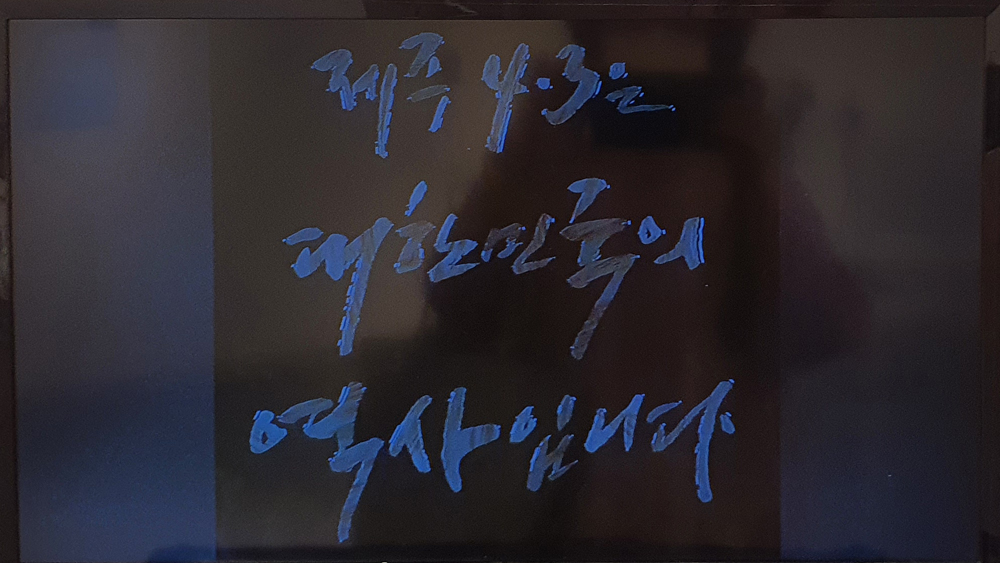 제주 4·3은
대한민국의
역사입니다